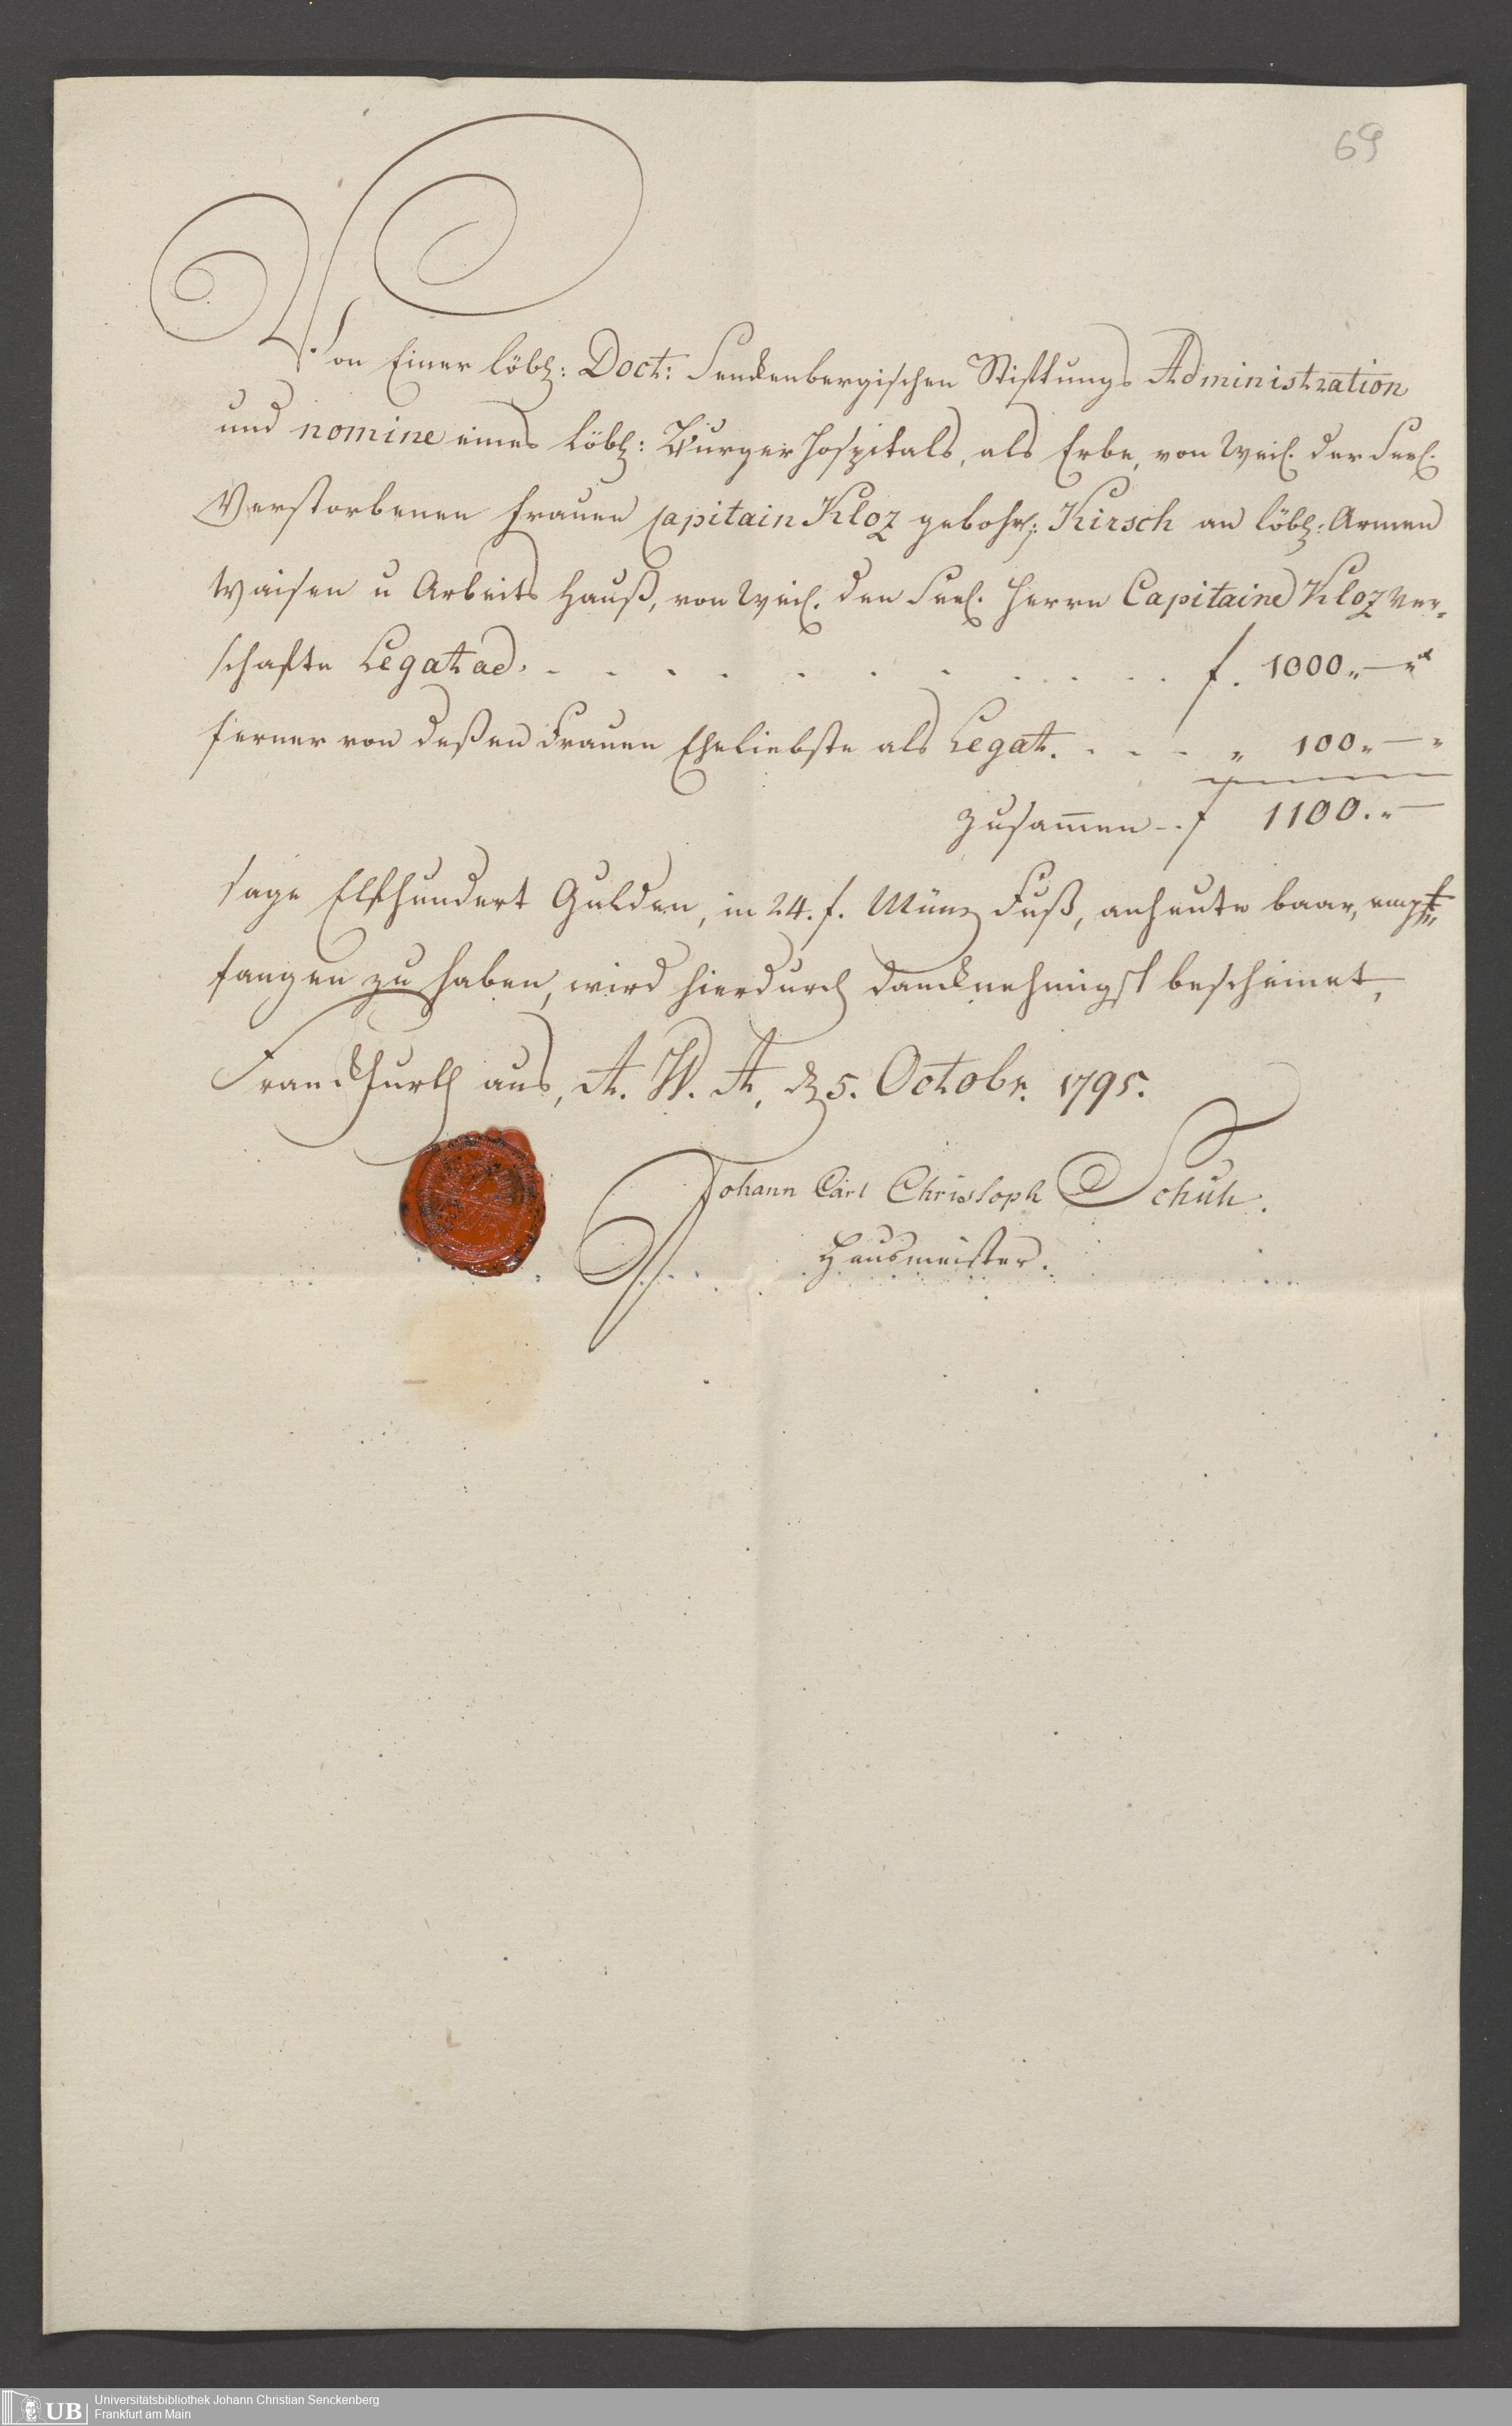 69
Von Einer löbl: Doct: Senckenbergischen Stiftungs Administration
und nomine eines Löbl: Bürger Hospitals, als Erbe, von Weil. der Seel.
Verstorbenen Frauen Capitain Kloz gebohr: Kirsch an löbl: Armen
Waisen u Arbeits Hauß, von Weil. den Seel. Herrn Capitaine Kloz ver-
schafte Legat ad. . . . . . . . . . . . . f. 1000.„—„
ferner von deßen Frauen Eheliebste als Legat. . . . . „ 100„—„
zusam̅en - . f 1100.„—
sage Elfhundert Gulden, in 24. f. Münz Fuß, anheute baar, empf-
fangen zu haben, wird hierdurch dancknehmigst bescheinet,
Franckfurth aus, A. W. A, d 5. Octobr. 1795.
Johann Carl Christoph Schuh.
Hausmeister.
UB
Universitätsbibliothek Johann Christian Senckenberg
Frankfurt am Main